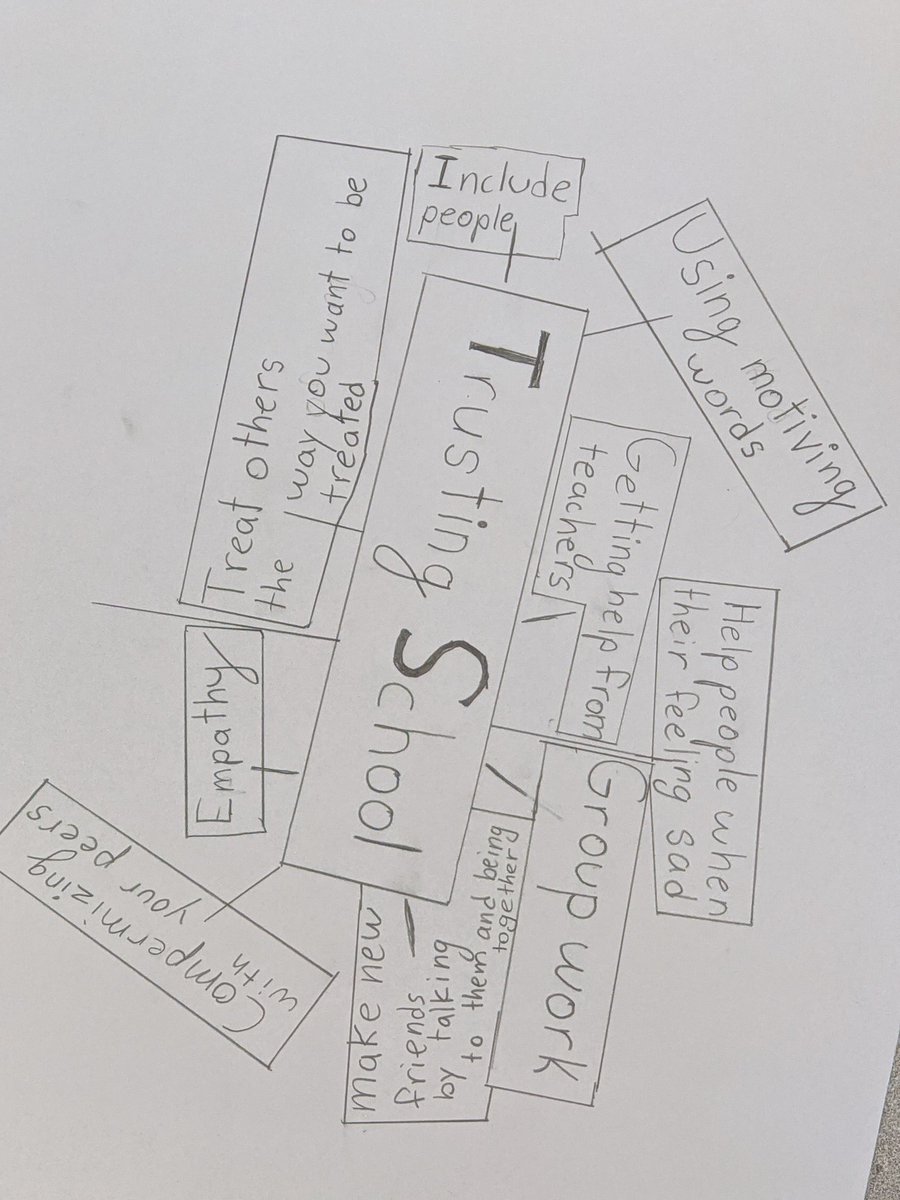 Trusting School
Include
people
Using motiving
words
Getting help from
teachers
Help people when
their feeling sad
Group work
make new
friends
by talking
to them and being
together
Compermizing
with your peers
Empathy
Treat others
the way you want to be
treated